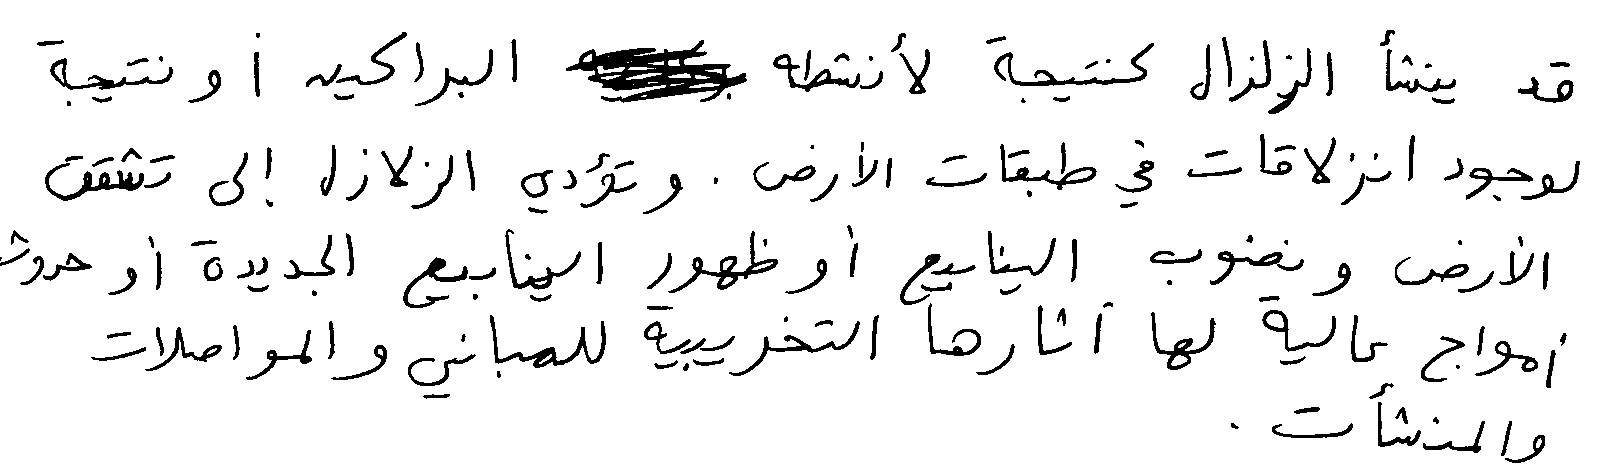 قد ينشأ الزلزال كنتيجة لأنشطه البراكين أو نتيجة
لوجود انزلاقات في طبقات الأرض . وتؤدي الزلازل إلى تشقق
الأرض ونضوب الينابيع أو ظهور الينابيع الجديدة أو حدوث
أمواج عالية لها آثارها التخريبية للمباني والمواصلات
والمنشأت .